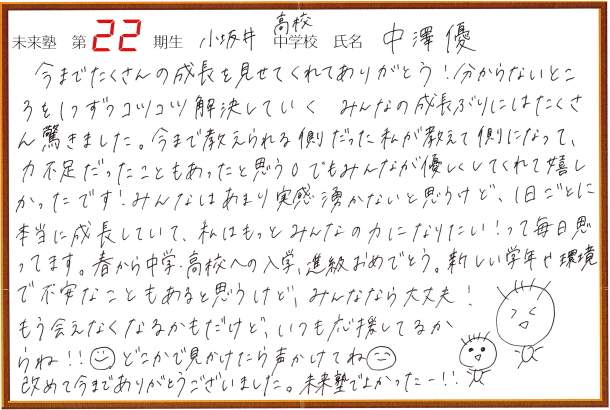 未来塾 第22期生 小坂井 高校 中学校 氏名 中澤 優
今までたくさんの成長を見せてくれてありがとう！分からないとこ
ろを1つずつコツコツ解決していく みんなの成長ぶりにはたくさ
ん驚きました。今まで教えられる側だった私が教えて側になって、
力不足だったこともあったと思う。でもみんなが優しくしてくれて嬉し
かったです！みんなはあまり実感湧かないと思うけど、1日ごとに
本当に成長していて、私はもっとみんなの力になりたい！って毎日思
ってます。春から中学・高校への入学、進級おめでとう。新しい学年や環境
で不安なこともあると思うけど、みんななら大丈夫！
もう会えなくなるかもだけど、いつも応援してるか
らね！！どこかで見かけたら声かけてね
改めて今までありがとうございました。未来塾でよかったー！！